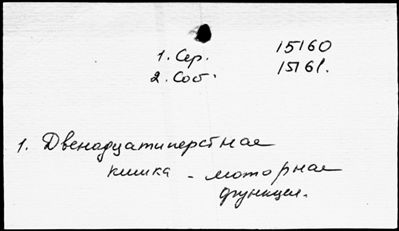 1. Сер. 15160
2. Соб. 15161.
1. Двенадцатиперстная
кишка - моторная
функция.